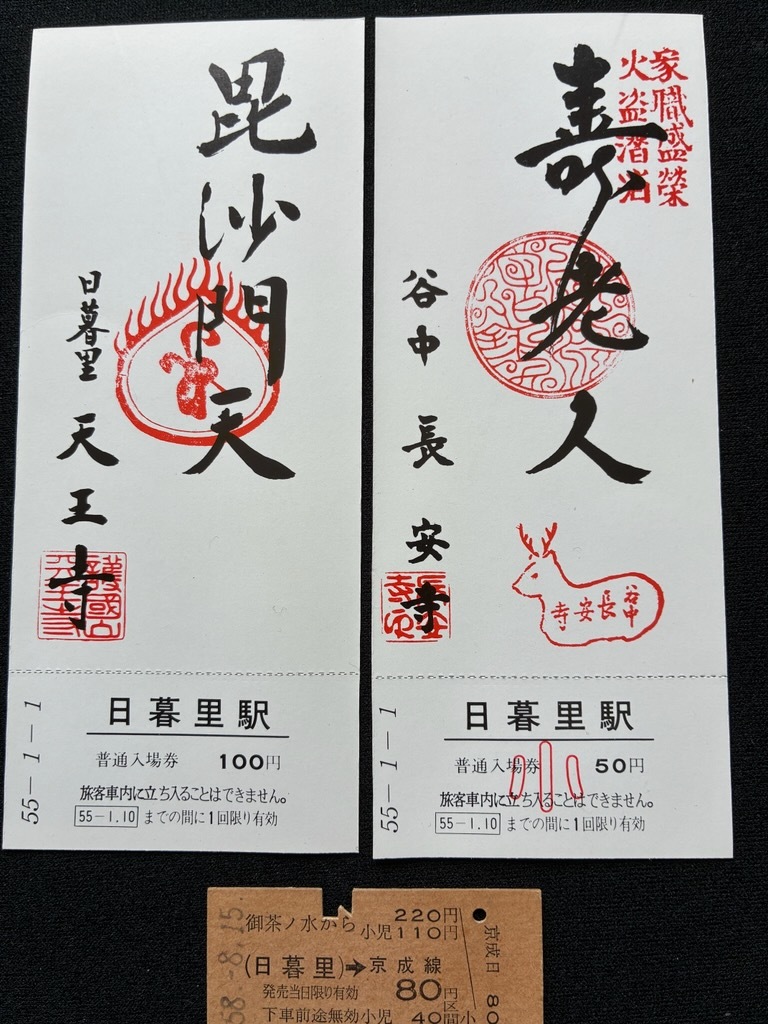 毘沙門天
日暮里 天王寺
55-1-1
日暮里駅
普通入場券 100円
旅客車内に立ち入ることはできません。
55-1.10 までの間に1回限り有効
家職盛榮
火盗潜消
寿老人
谷中 長安寺
谷中
長安寺
55-1-1
日暮里駅
普通入場券 50円
小
旅客車内に立ち入ることはできません。
55-1.10 までの間に1回限り有効
58.-8.15.
御茶ノ水から 220円
小児110円
(日暮里)➡京成線
発売当日限り有効 80円区間
下車前途無効小児 40
小
京成日 80